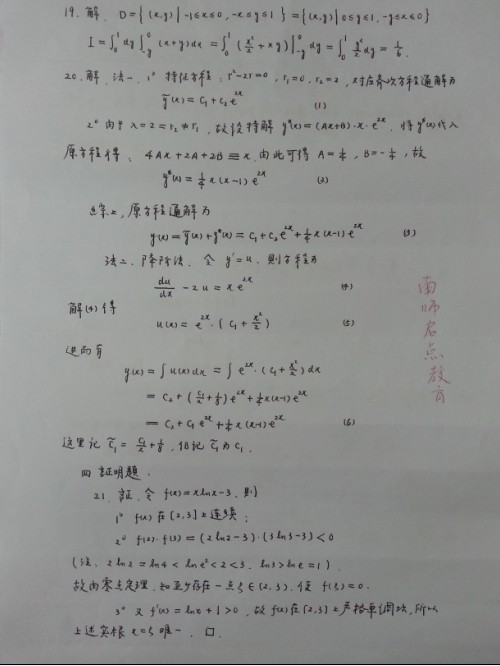 19.解、D={(x,y)|-1≤x≤0,-x≤y≤1}={(x,y)|0≤y≤1,-y≤x≤0}
I=∫₀¹dy∫₋y⁰(x+y)dx=∫₀¹(x²/2+xy)|₋y⁰dy=∫₀¹y²/2dy=1/6.
20.解、法一、1° 特征方程:r²-2r=0,r₁=0,r₂=2,对应齐次方程通解为
ȳ(x)=C₁+C₂e^{2x} (1)
2° 由于λ=2=r₂≠r₁,故设特解y*(x)=(Ax+B)·x·e^{2x},将y*(x)代入
原方程得、4Ax+2A+2B≡x.由此可得A=1/4,B=-1/4,故
y*(x)=1/4x(x-1)e^{2x} (2)
综上,原方程通解为
y(x)=ȳ(x)+y*(x)=C₁+C₂e^{2x}+1/4x(x-1)e^{2x} (3)
法二、降阶法.令y'=u,则方程为
du/dx-2u=xe^{2x} (4)
解(4)得
u(x)=e^{2x}·(C₁+x²/2) (5)
进而有
y(x)=∫u(x)dx=∫e^{2x}·(C₁+x²/2)dx
=C₂+(C₁/2+1/8)e^{2x}+1/4x(x-1)e^{2x}
=C₂+C₁e^{2x}+1/4x(x-1)e^{2x} (6)
这里记C̃₁=C₁/2+1/8,仍记C̃₁为C₁.
四、証明題.
21.証、令f(x)=xlnx-3,则
1° f(x)在[2,3]上连续;
2° f(2)·f(3)=(2ln2-3)·(3ln3-3)<0
(注、2ln2=ln4<lne²<2<3,ln3>lne=1).
故由零点定理,知至少存在一点ξ∈(2,3),使f(ξ)=0.
3° 又f'(x)=lnx+1>0,故f(x)在[2,3]上严格单调,所以
上述实根x=ξ唯一.口.
南师名点教育